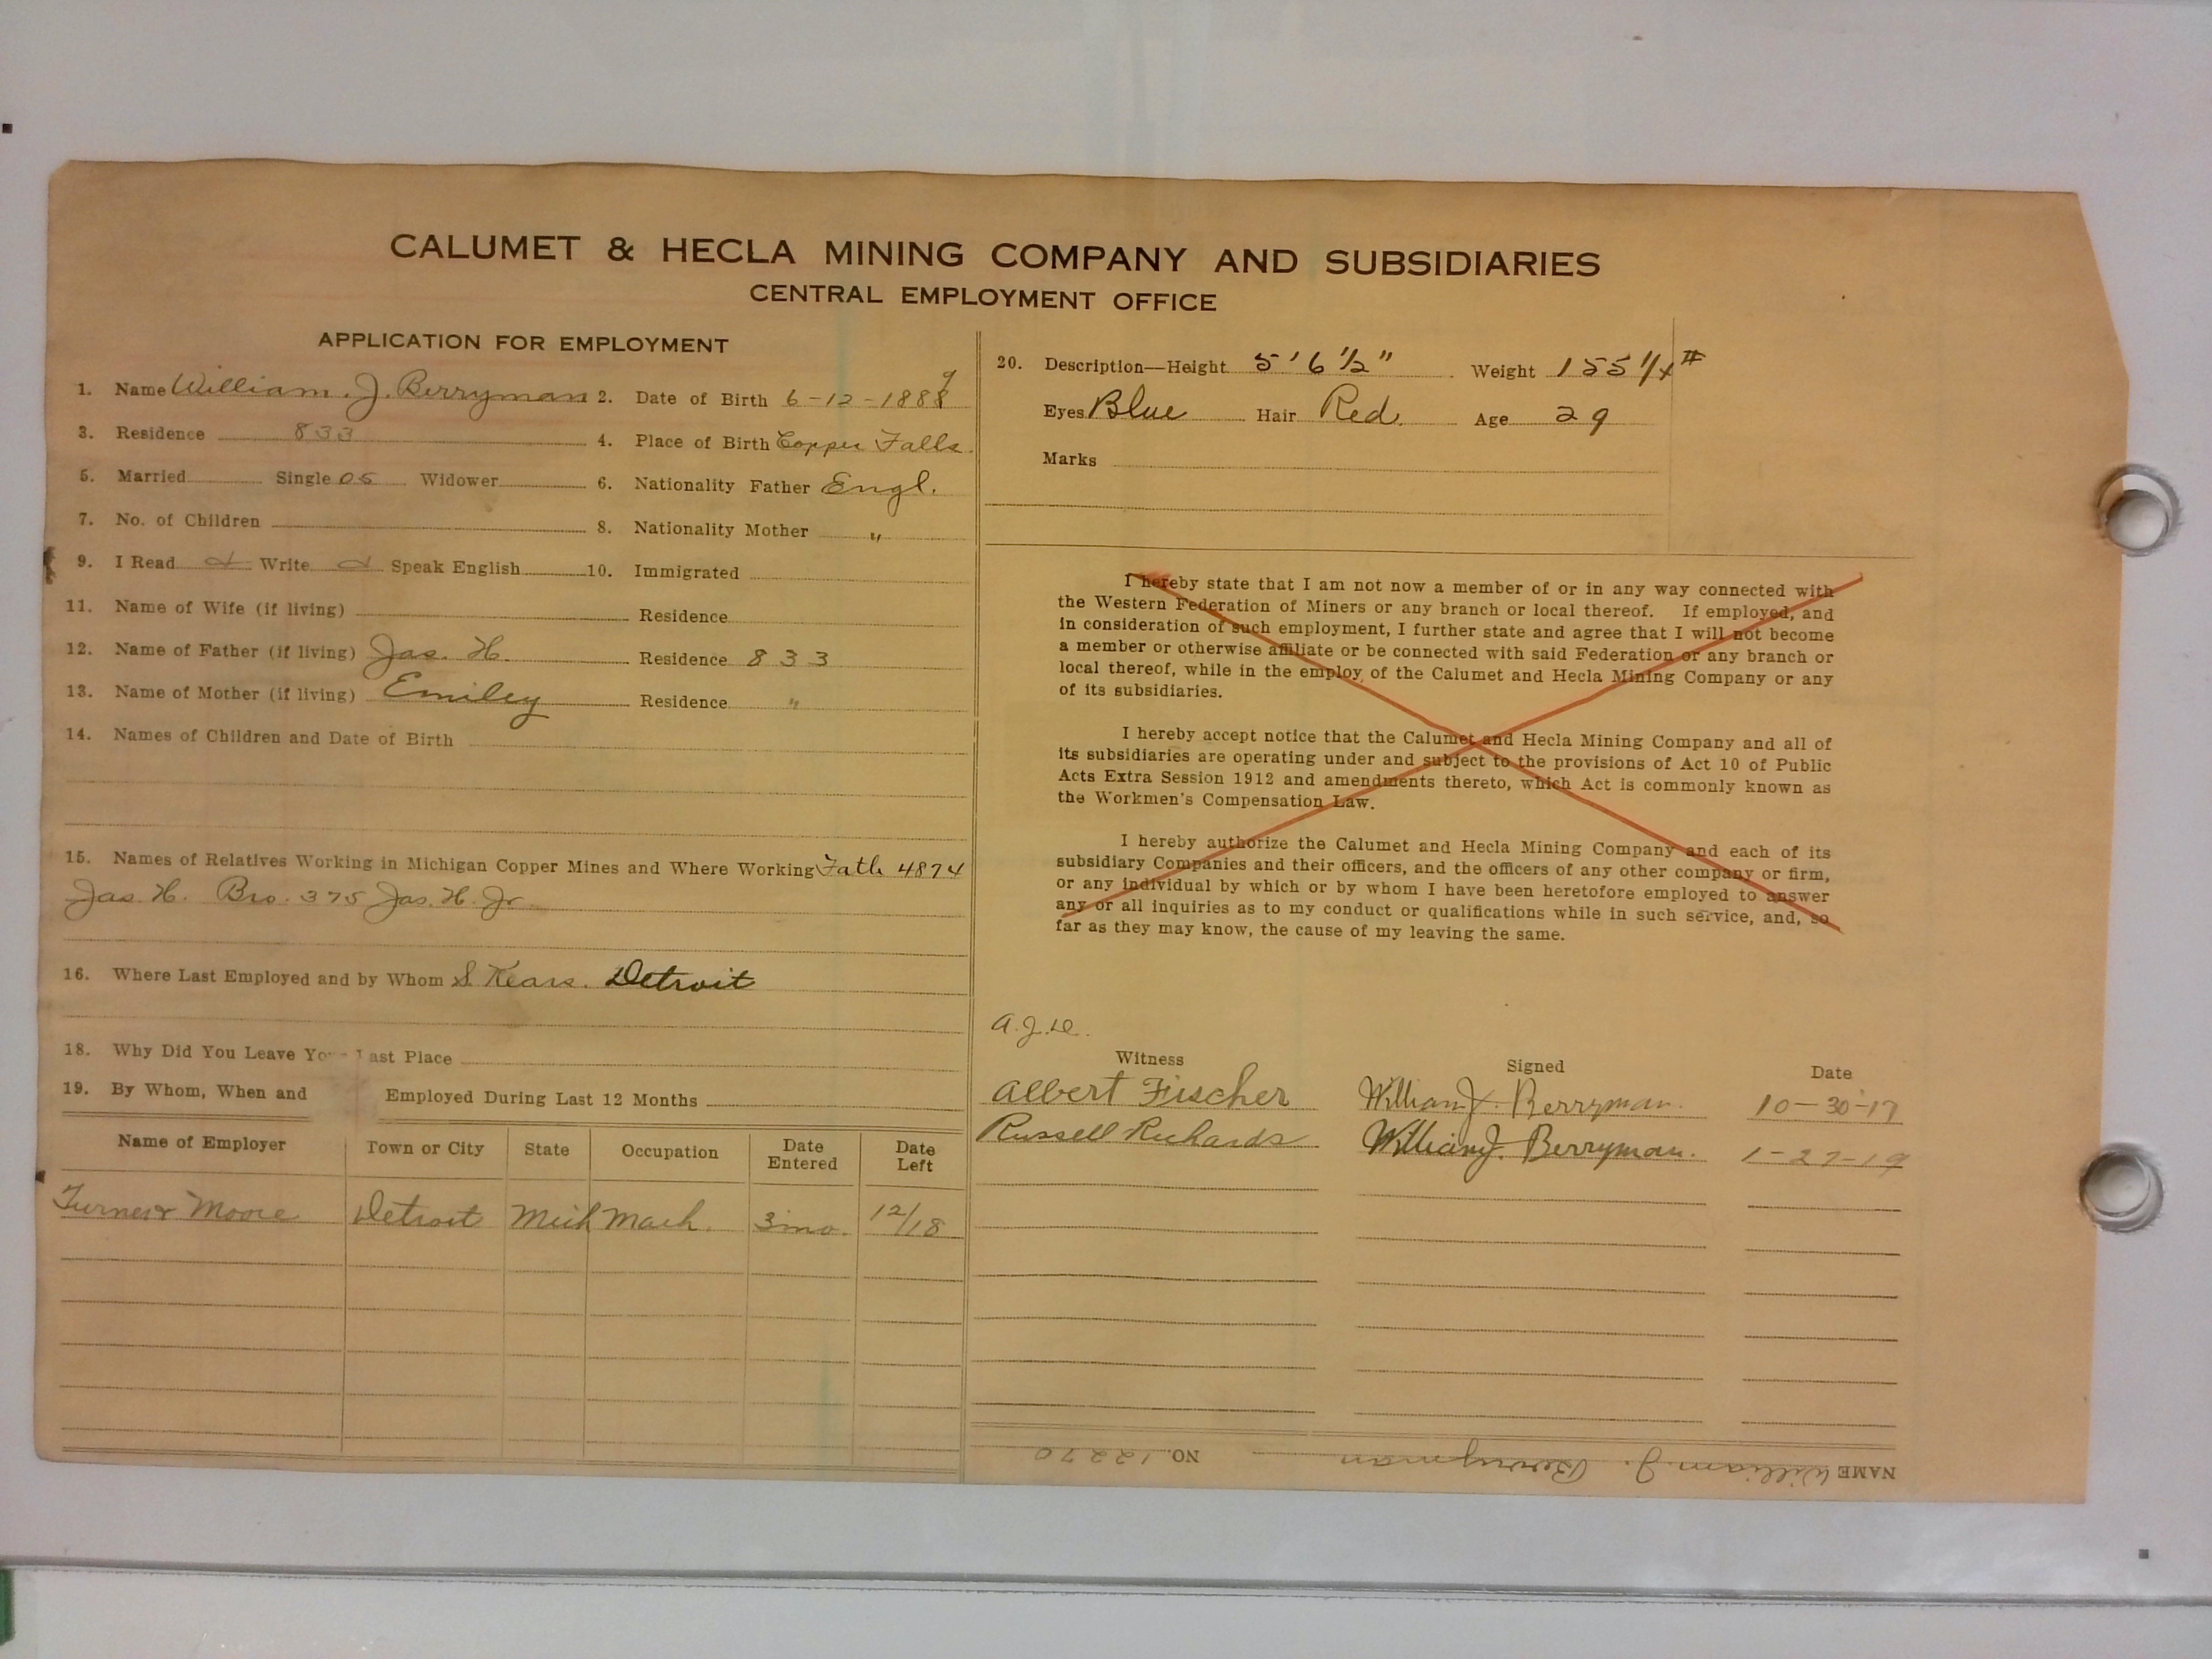 CALUMET & HECLA MINING COMPANY AND SUBSIDIARIES
CENTRAL EMPLOYMENT OFFICE
APPLICATION FOR EMPLOYMENT
1. Name William. J. Berryman 2. Date of Birth 6-12-1888 9
3. Residence 833 4. Place of Birth Copper Falls.
5. Married Single os Widower 6. Nationality Father Engl.
7. No. of Children 8. Nationality Mother "
9. I Read Write Speak English 10. Immigrated
11. Name of Wife (if living) Residence
12. Name of Father (if living) Jas. H. Residence 833
13. Name of Mother (if living) Emiley Residence "
14. Names of Children and Date of Birth
15. Names of Relatives Working in Michigan Copper Mines and Where Working Fath 4874
Jas. H. Bro. 375 Jas. H. Jr.
16. Where Last Employed and by Whom S. Kears. Detroit
18. Why Did You Leave Yo ast Place
19. By Whom, When and Employed During Last 12 Months
Name of Employer Town or City State Occupation Date Entered Date Left
Turner & Moore Detroit Mich Mach. 3 mo. 12/18
20. Description—Height 5' 6 1/2" Weight 155 1/4 #
Eyes Blue Hair Red. Age 29
Marks
I hereby state that I am not now a member of or in any way connected with
the Western Federation of Miners or any branch or local thereof. If employed, and
in consideration of such employment, I further state and agree that I will not become
a member or otherwise affiliate or be connected with said Federation or any branch or
local thereof, while in the employ of the Calumet and Hecla Mining Company or any
of its subsidiaries.
I hereby accept notice that the Calumet and Hecla Mining Company and all of
its subsidiaries are operating under and subject to the provisions of Act 10 of Public
Acts Extra Session 1912 and amendments thereto, which Act is commonly known as
the Workmen's Compensation Law.
I hereby authorize the Calumet and Hecla Mining Company and each of its
subsidiary Companies and their officers, and the officers of any other company or firm,
or any individual by which or by whom I have been heretofore employed to answer
any or all inquiries as to my conduct or qualifications while in such service, and, so
far as they may know, the cause of my leaving the same.
Witness Signed Date
Albert Fischer William J. Berryman. 10-30-17
Russell Richards William J. Berryman. 1-27-19
NAME William. J. Berryman NO. 12270